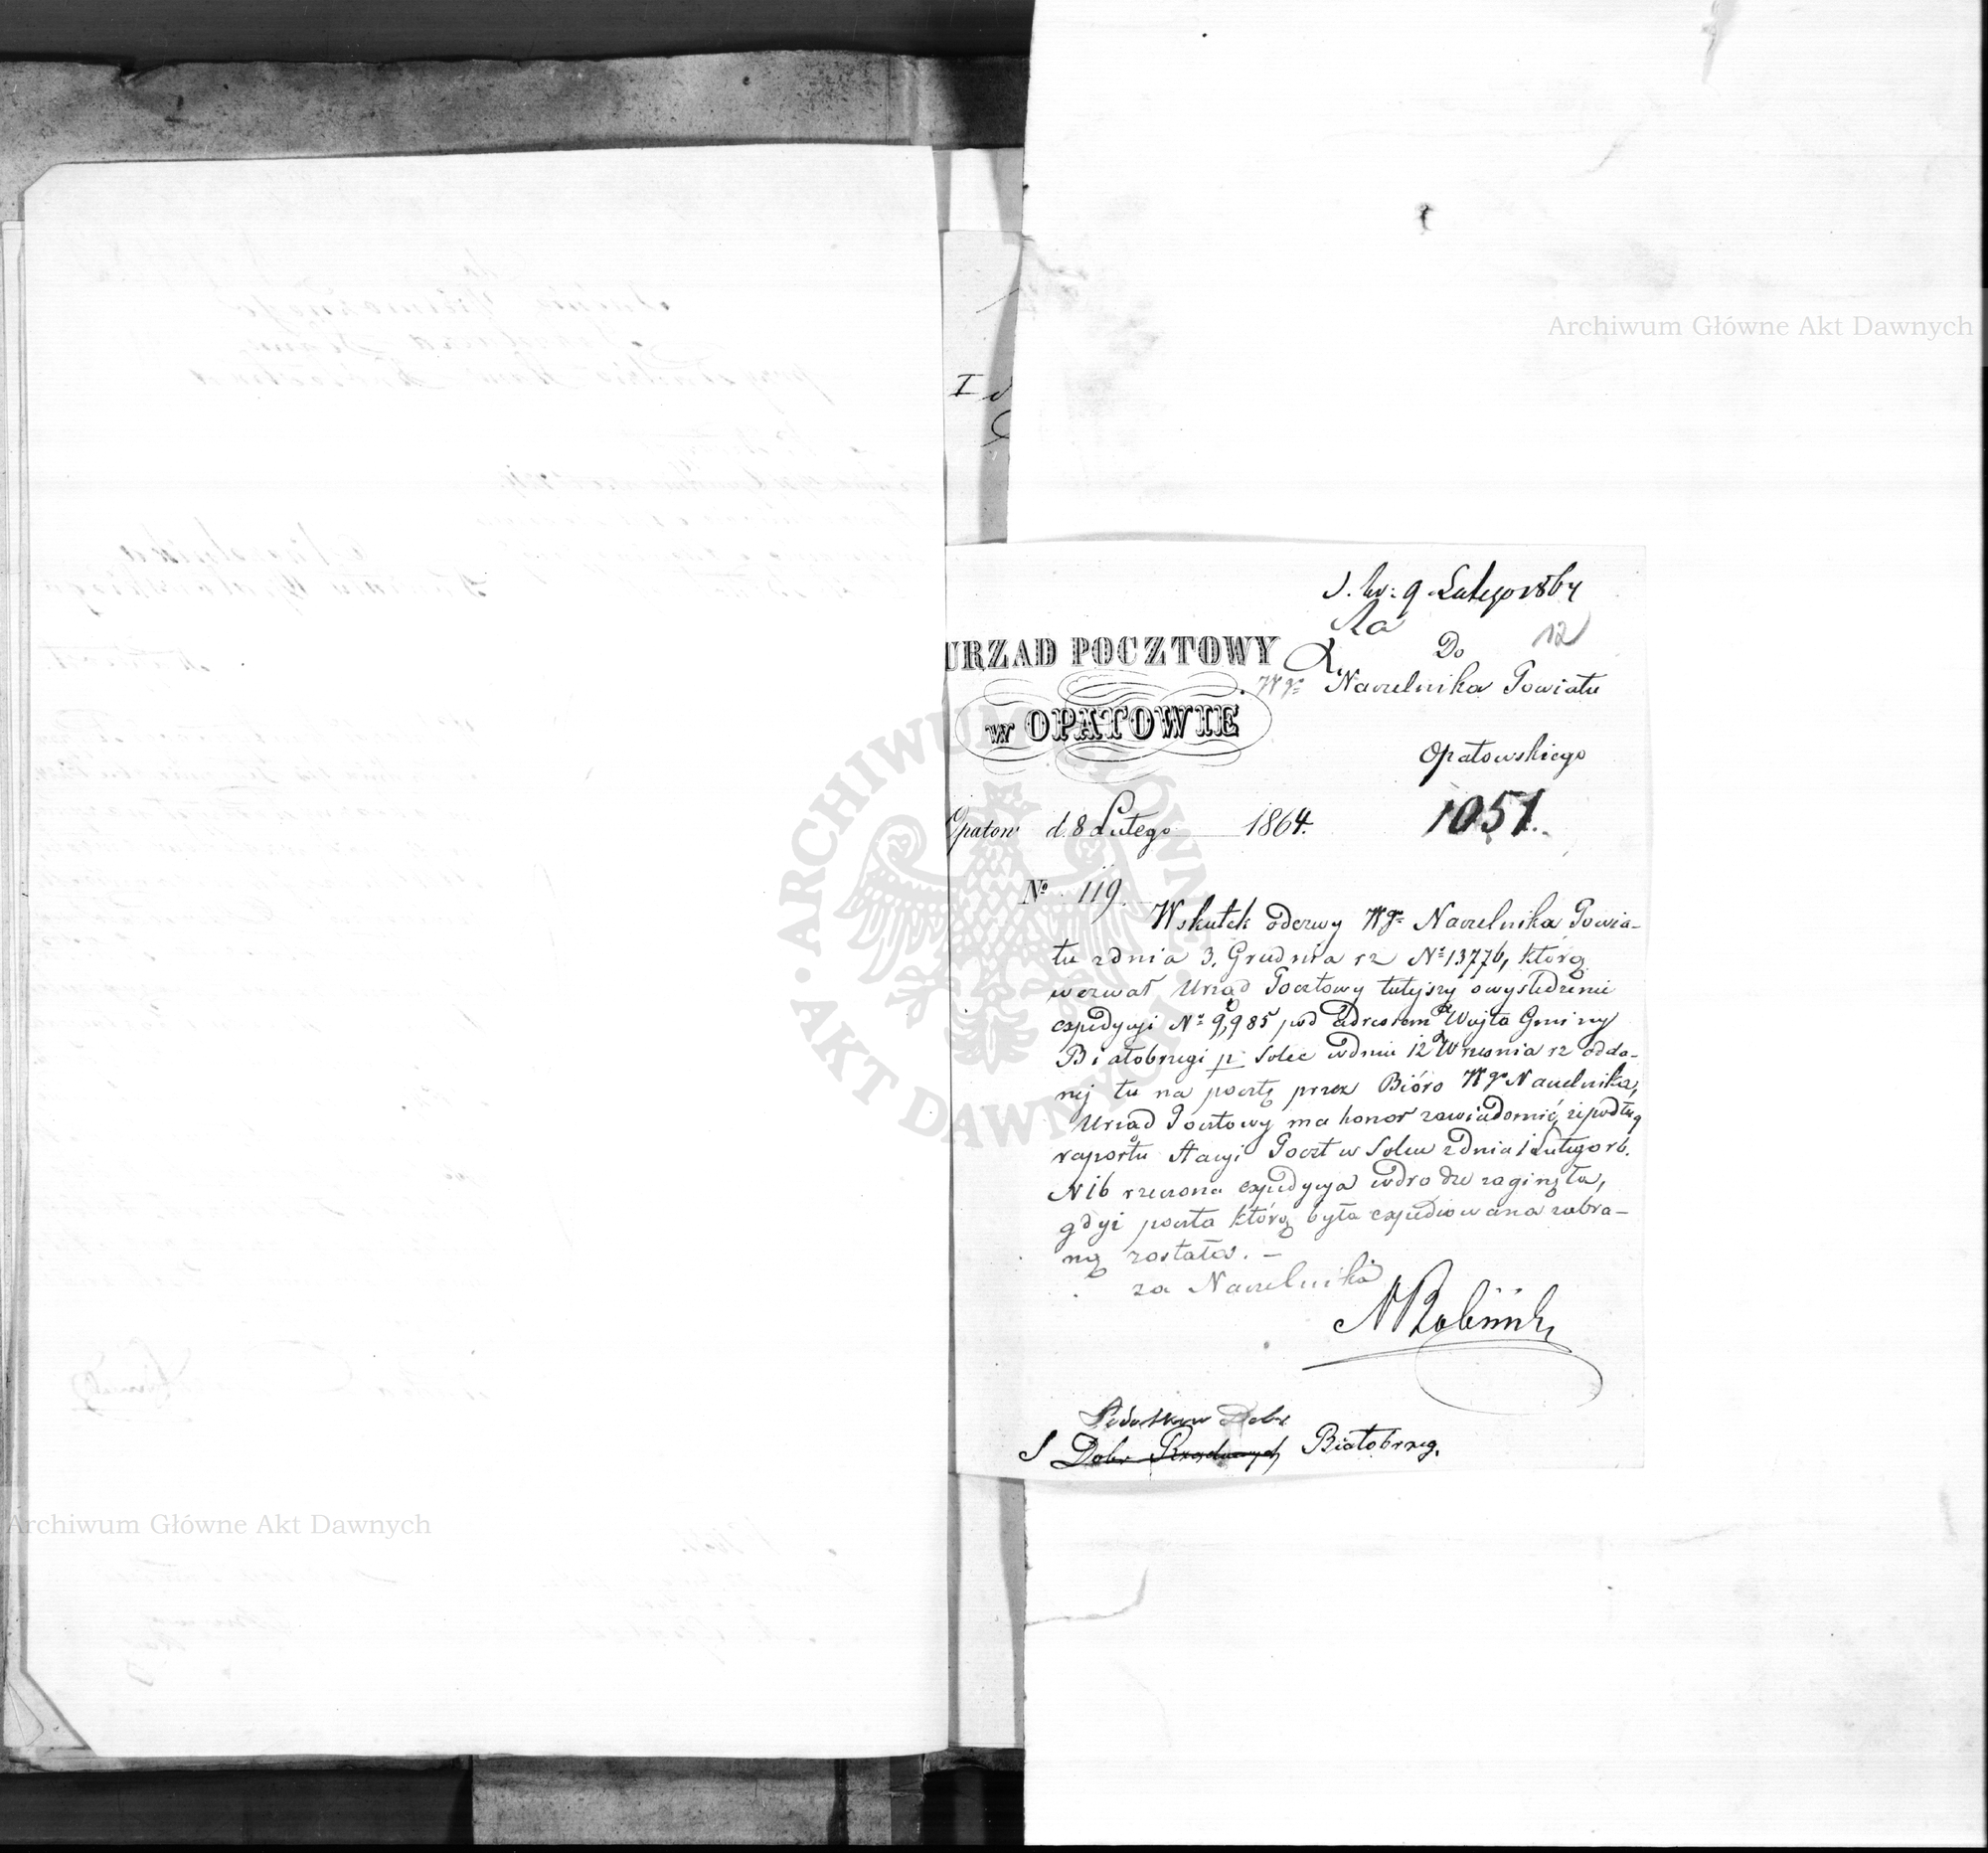 9 Lutego 1864
12
URZAD POCZTOWY
Do
Wgo Naczelnika Powiatu
w OPATOWIE
Opatowskiego
Opatow d. 8 Lutego 1864.
1051.
No 119.
Wskutek odezwy Wgo Naczelnika Powia-
tu z dnia 3. Grudnia rz No 13776, którą
wezwał Urząd Pocztowy tutejszy o wyśledzenie
expedycyi No 9,985 pod adresem Wójta Gminy
Białobrzegi p. Solec w dniu 12 Września rz odda-
nej tu na pocztę przez Bióro Wgo Naczelnika,
Urząd Pocztowy ma honor zawiadomić, iż podług
raportu Stacyi Poczt w Solcu z dnia 1 Lutego rb.
N 16 rzeczona expedycya w drodze zaginęła,
gdyż poczta którą była expediowana zabra-
ną została. –
za Naczelnika
Dobr
Dobr Rządowych Białobrzeg.
Archiwum Główne Akt Dawnych
Archiwum Główne Akt Dawnych
ARCHIWUM GŁÓWNE AKT DAWNYCH